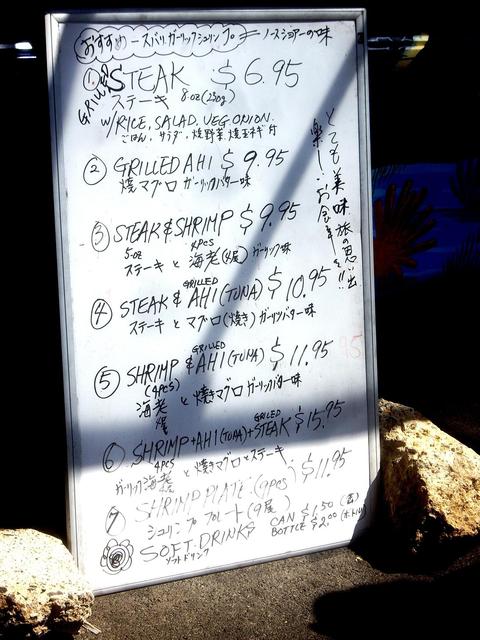 おすすめ スパイガーリックシュリンプ = ノースショアーの味
① GRILLED STEAK $6.95
ステーキ 8oz (230g)
W/RICE, SALAD, VEG. ONION.
ごはん, サラダ, 焼野菜, 焼玉ネギ付
とても美味 旅の思い出
楽しいお食事を!!
② GRILLED AHI $9.95
焼マグロ ガーリックバター味
③ STEAK & SHRIMP $9.95
5oz 4pcs
ステーキ と 海老(4尾) ガーリック味
④ STEAK & GRILLED AHI (TUNA) $10.95
ステーキ と マグロ(焼き) ガーリックバター味
⑤ SHRIMP & GRILLED AHI (TUNA) $11.95
(4PCS)
海老 と 焼きマグロ ガーリックバター味
4尾
⑥ SHRIMP + AHI (TUNA) + GRILLED STEAK $15.95
4PCS
ガーリック海老 と 焼きマグロ と ステーキ
4尾
⑦ SHRIMP PLATE (9pcs) $11.95
シュリンプ プレート (9尾)
SOFT DRINKS CAN $1.50 (缶)
ソフトドリンク BOTTLE $2.00 (ボトル)